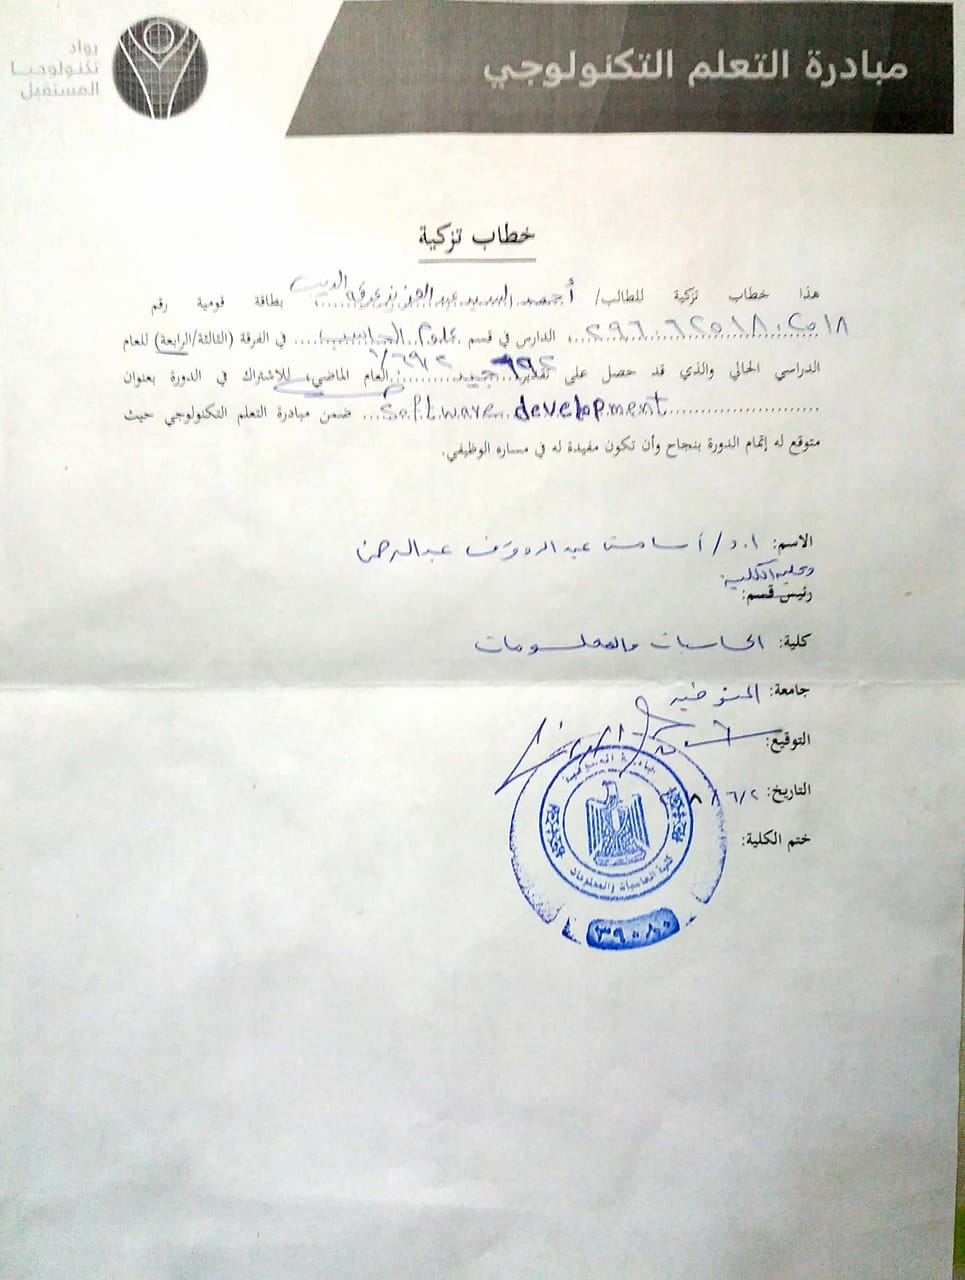 رواد
تكنولوجيا
المستقبل
مبادرة التعلم التكنولوجي
خطاب تزكية
هذا خطاب تزكية للطالب/ أحمد السيد عبد العزيز عرفه الديب بطاقة قومية رقم
الدارس في قسم علوم الحاسب في الفرقة (الثالثة/الرابعة) للعام
الدراسي الحالي والذي قد حصل على تقدير جيد العام الماضي، للاشتراك في الدورة بعنوان
Software development ضمن مبادرة التعلم التكنولوجي حيث
متوقع له إتمام الدورة بنجاح وأن تكون مفيدة له في مساره الوظيفي.
الاسم: ا.د/ أسامة عبد الرؤوف عبد الرحمن
الكلية
رئيس قسم:
كلية: الحاسبات والمعلومات
جامعة: المنوفية
التوقيع:
التاريخ:
ختم الكلية:
كلية الحاسبات والمعلومات